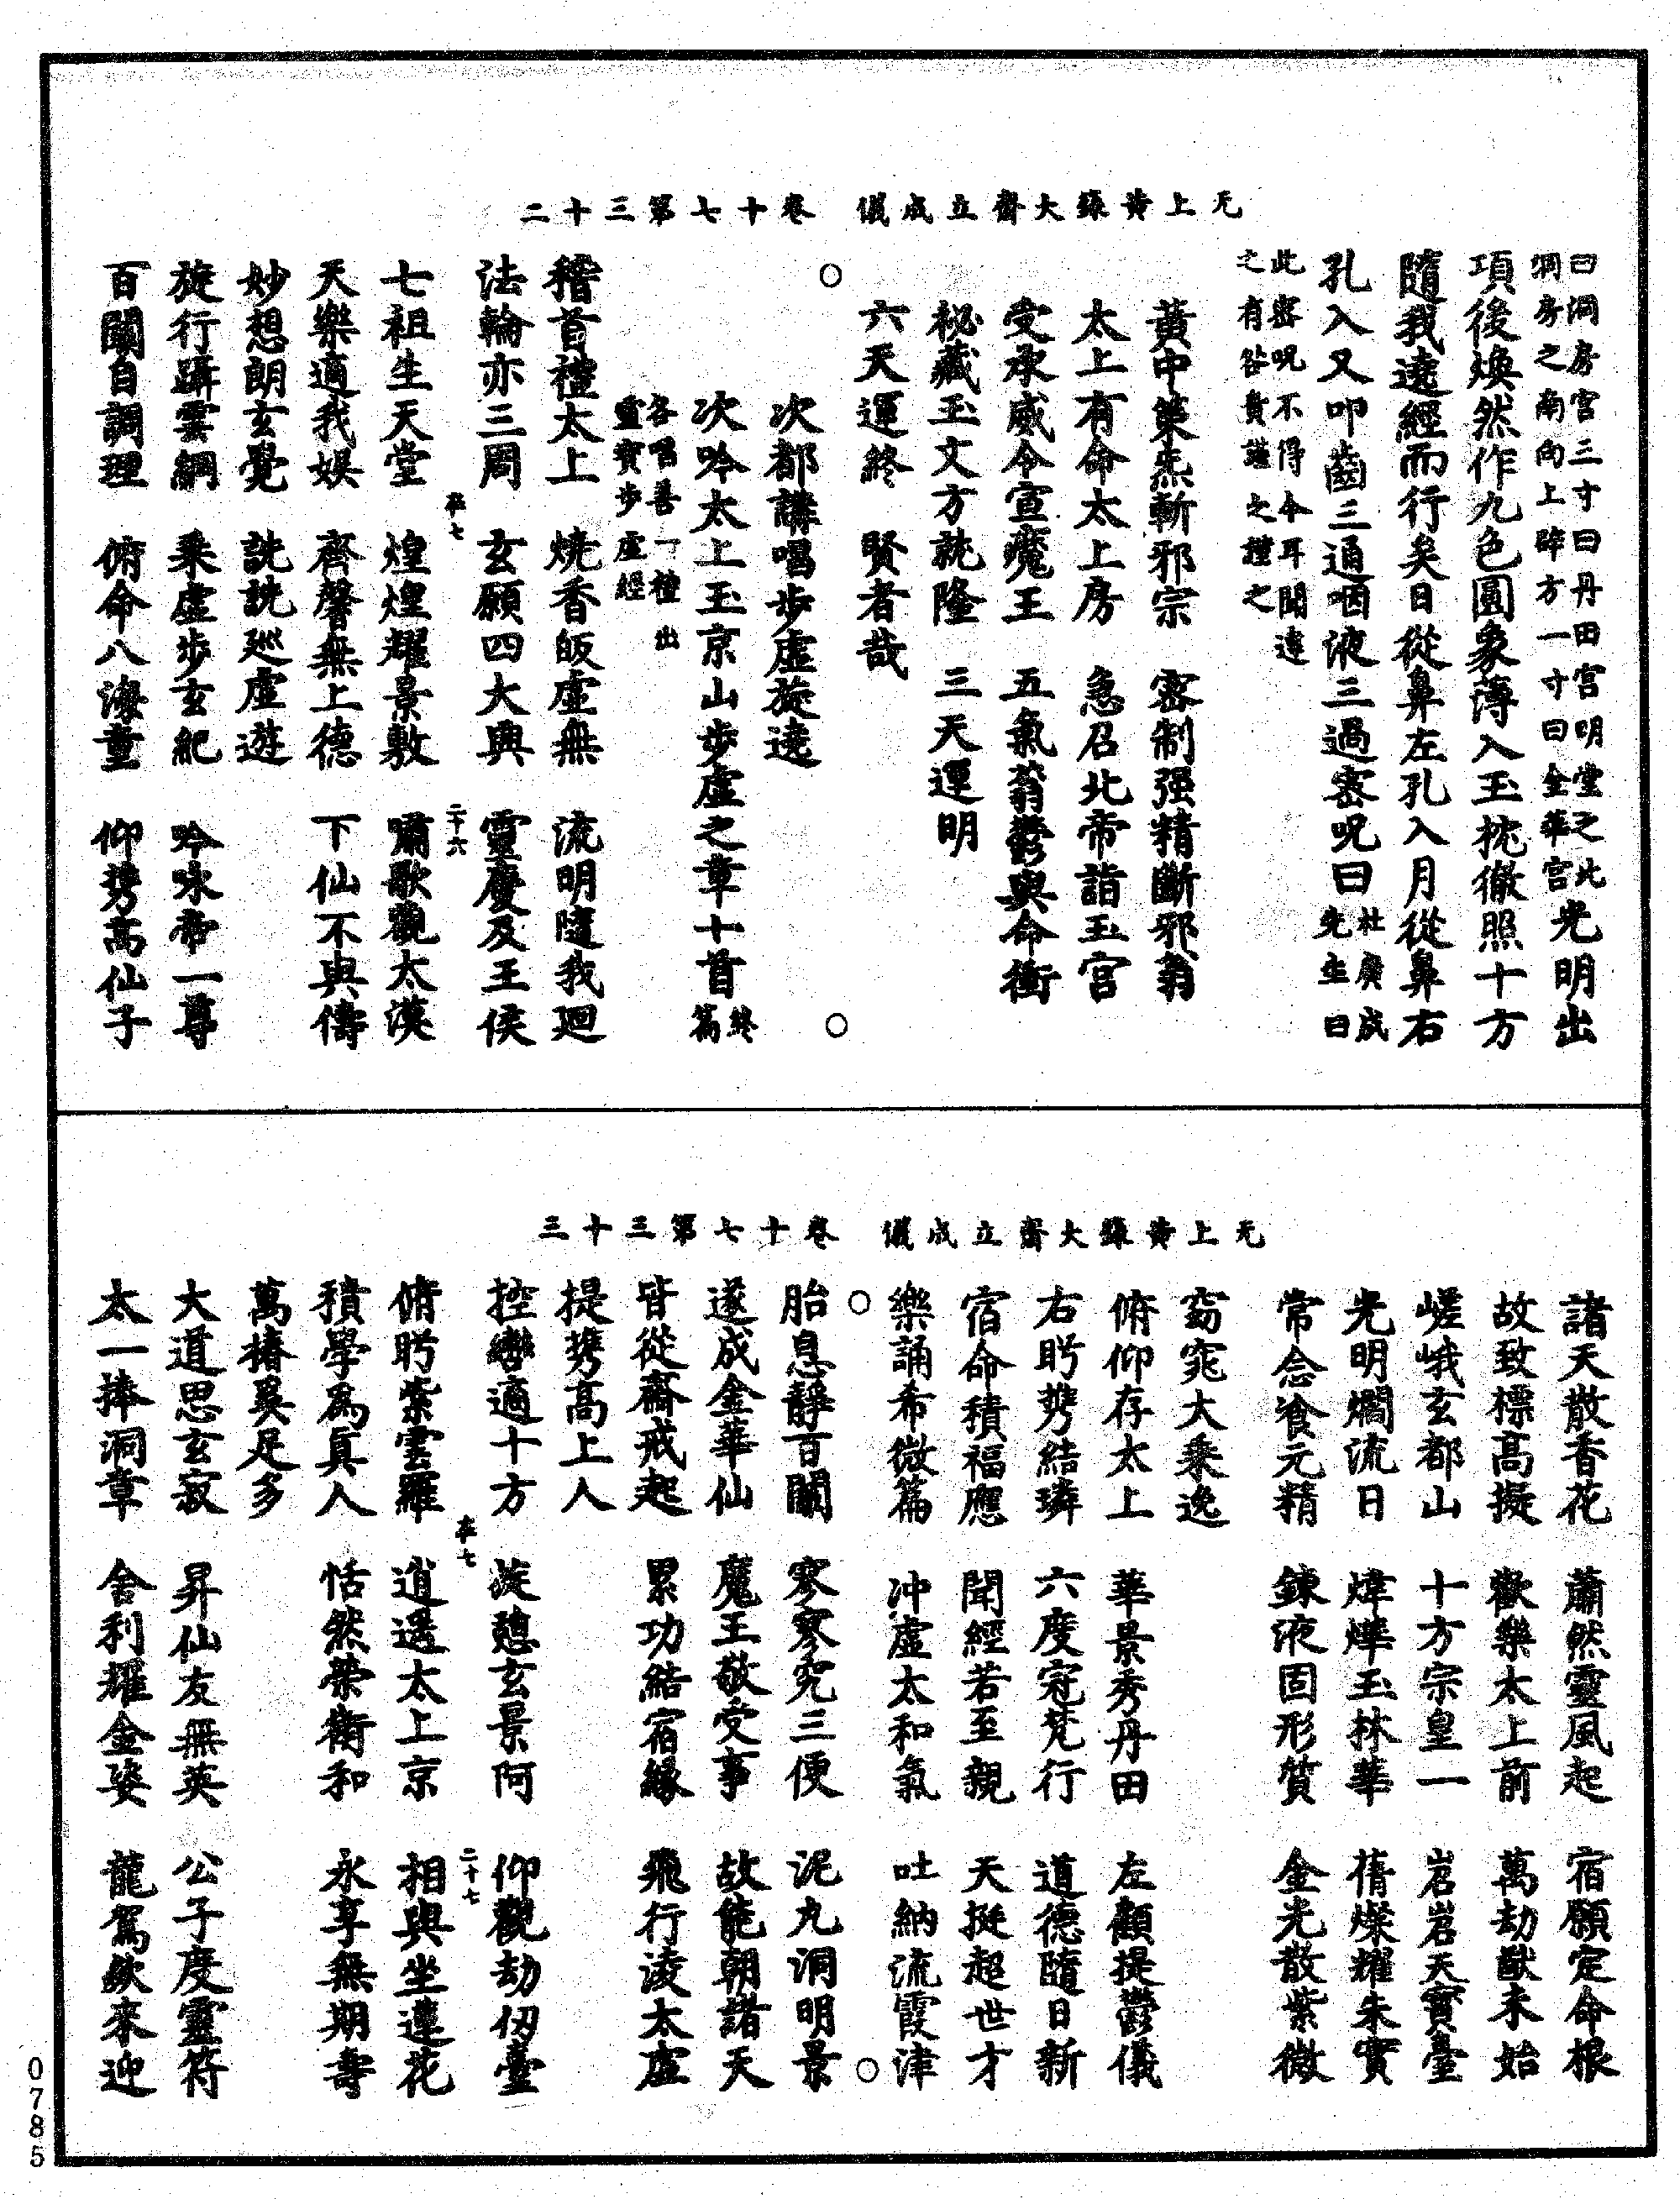 无上黃籙大齋立成儀　卷十七第三十二
曰洞房宮三寸曰丹田宮明堂之北
洞房之南向上辟方一寸曰金華宮光明出
項後煥然作九色圓象薄入玉枕徹照十方
隨我遶經而行矣日從鼻左孔入月從鼻右
孔入又叩齒三通咽液三過密呪曰杜廣成先生曰
此密呪不得令耳聞違
之有咎責謹之謹之
黃中策炁斬邪宗　密制强精斷邪翁
太上有命太上房　急召北帝詣玉宮
受承威令宣魔王　五氣蓊鬱與命衝
秘藏玉文方就隆　三天運明
六天運終　賢者哉
次都講唱步虛旋遶
次吟太上玉京山步虛之章十首終篇
各唱善一禮出
靈寶步虛經
稽首禮太上　燒香皈虛無　流明隨我迴
法輪亦三周　玄願四大興　靈慶及王侯
卒七　二十六
七祖生天堂　煌煌耀景敷　嘯歌觀太漠
天樂適我娛　齊馨無上德　下仙不與儔
妙想朗玄覺　詵詵巡虛遊
旋行躡雲綱　乘虛步玄紀　吟咏帝一尊
百關自調理　俯命八海童　仰携高仙子
无上黃籙大齋立成儀　卷十七第三十三
諸天散香花　蕭然靈風起　宿願定命根
故致標高擬　歡樂太上前　萬劫猷未始
嵯峨玄都山　十方宗皇一　岧岧天寶臺
光明爓流日　煒燁玉林華　蒨燦耀朱實
常念飡元精　鍊液固形質　金光散紫微
窈窕大乘逸
俯仰存太上　華景秀丹田　左顧提鬱儀
右盻携結璘　六度冠梵行　道德隨日新
宿命積福應　聞經若至親　天挺超世才
樂誦希微篇　沖虛太和氣　吐納流霞津
胎息靜百關　寥寥究三便　泥丸洞明景
遂成金華仙　魔王敬受事　故能朝諸天
皆從齋戒起　累功結宿緣　飛行凌太虛
提携高上人
控轡適十方　旋憩玄景阿　仰觀劫仞臺
卒七　二十七
俯盻紫雲羅　逍遙太上京　相與坐蓮花
積學爲眞人　恬然榮衛和　永享無期壽
萬椿奚足多
大道思玄寂　昇仙友無英　公子度靈符
太一捧洞章　舍利耀金姿　龍駕欻來迎
0785